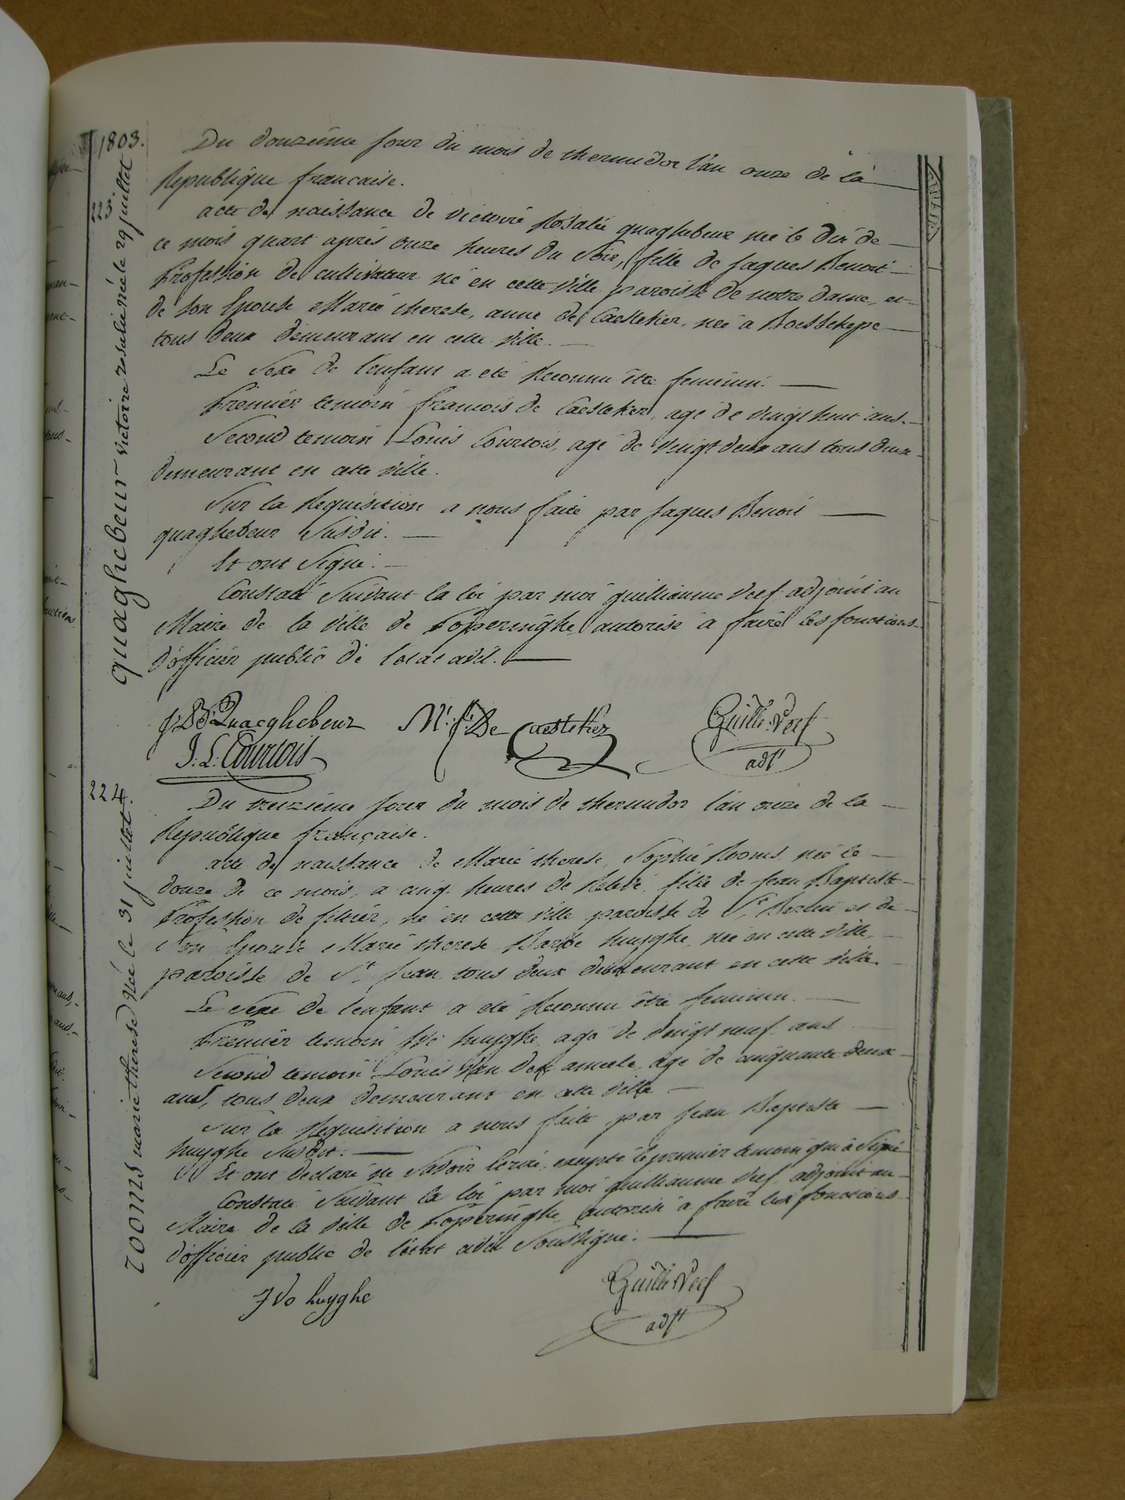 1803.
223
quaghebeur victoire rosalie née le 29 juillet
Du douzième jour du mois de thermidor l'an onze de la
République française.
acte de naissance de victoire Rosalie quaghebeur née le dix de
ce mois quart après onze heures du Soir, fille de Jaques Benoit
Profession de cultivateur né en cette ville paroisse de notre dame, et
de son Epouse Marie therese, anne de Caesteker, née a Boesschepe
tous deux demeurant en cette ville.
Le Sexe de l'enfant a été Reconnu être feminin.
Premier temoin francois de Caesteker, agé de vingt huit ans.
Second temoin Louis Courtois, agé de vingt deux ans tous deux
demeurant en cette ville.
Sur la Requisition a nous faite par Jaques Benoit
quaghebeur Susdit.
Et ont Signé.
Constaté Suivant la loi par moi guilliaume Verf adjoint au
Maire de la ville de Poperinghe, autorisé à faire les fonctions
d'officier public de l'etat civil.
J: Bd: Quaeghebeur M: f: De Caesteker Guille: Verf
J. L. Courtois adjt
224
rooms marie therese Née le 31 juillet.
Du treizième jour du mois de thermidor l'an onze de la
République française.
acte de naissance de Marie therese Sophie Rooms, née le
douze de ce mois, a cinq heures de Relevé, fille de Jean Baptiste
Profession de née en cette ville paroisse de St Bertin et de
son Epouse Marie therese Barbe huyghe, née en cette ville
paroisse de St Jean, tous deux demeurant en cette ville.
Le Sexe de l'enfant a été Reconnu être feminin.
Premier temoin Ivo huyghe, agé de vingt neuf ans
Second temoin Louis Van den ameele, agé de cinquante deux
ans, tous deux demeurant en cette ville
Sur la Requisition a nous faite par Jean Baptiste
huyghe Susdit.
Et ont declaré ne Savoir Ecrire, excepté le premier temoin qui a Signé
Constaté Suivant la loi par moi guilliaume Verf adjoint au
Maire de la ville de Poperinghe, autorisé à faire les fonctions
d'officier public de l'etat civil Soussigné.
Ivo huyghe Guille: Verf
adjt